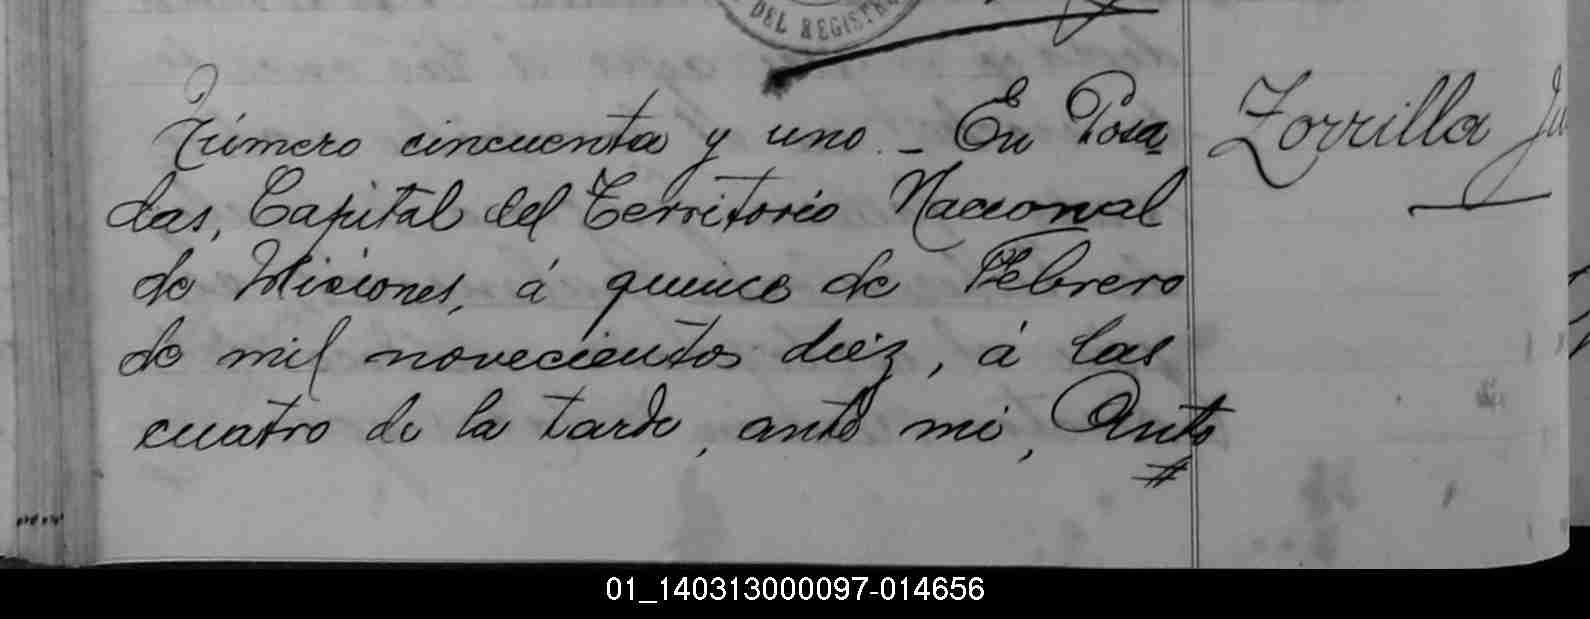 DEL REGISTR
Número cincuenta y uno. - En Posa
das, Capital del Territorio Nacional
de Misiones, á quince de Febrero
de mil novecientos diez, á las
cuatro de la tarde, ante mi, Anto
Zorrilla Ju
01_140313000097-014656